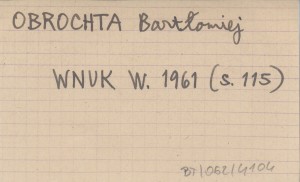 OBROCHTA Bartłomiej
WNUK W. 1961 (s. 115)
BT/062/4104